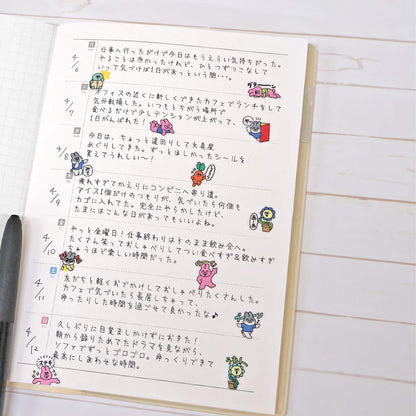 月
4/6
仕事へ行っただけで今日はもうえらい気持ちだった。
やることは多かったけれど、ひとつずつこなして
いって気づけば1日があっという間・・・。
4/7
オフィスの近くに新しくできたカフェでランチをして
気分転換した。いつもとちがう場所で
食べるだけで少しテンションが上がって、
1日がんばれた!
4/8
今日は、ちょっと遠回りして文房具
めぐりしてきた。ずっとほしかったシールを
買えてうれしい〜!
木
4/9
疲れすぎてかえりにコンビニへ寄り道。
アイス1個だけのつもりが、気づいたら何個も
カゴに入れてた。完全にやらかしたけど、
たまにはこんな日があってもいいよね。
金
4/10
やっと金曜日!仕事終わりはそのまま飲み会へ。
たくさん笑っておしゃべりしてつい食べすぎ&飲みすぎ
ちゃうほど楽しい時間だった。
土
4/11
友だちと軽くおでかけしておしゃべりたくさんした。
カフェで気づいたら長居しちゃって、
ゆったりした時間を過ごせて良かったな♪
日
4/12
久しぶりに目覚ましかけずにおきた!
朝から録りためてたドラマを見ながら、
ソファでずっとゴロゴロ。ゆっくりできて
最高にしあわせな時間。